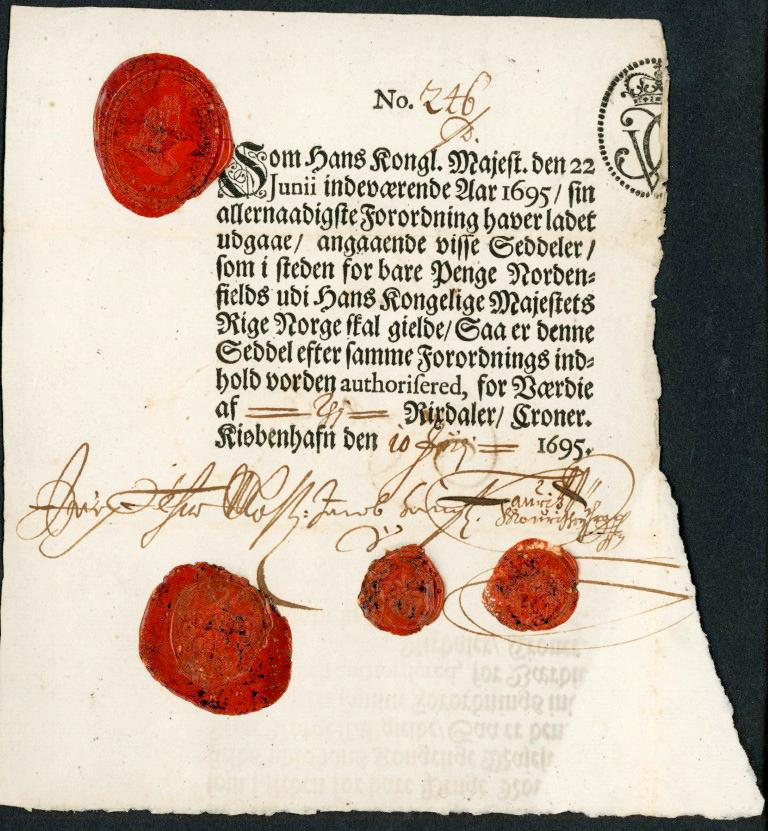 No. 246
Som Hans Kongl. Majest. den 22
Junii indeværende Aar 1695/ sin
allernaadigste Forordning haver ladet
udgaae/ angaaende visse Seddeler/
som i steden for bare Penge Norden=
fields udi Hans Kongelige Majestets
Rige Norge skal gielde/ Saa er denne
Seddel efter samme Forordnings ind=
hold vorden authorisered, for Værdie
af Rixdaler/ Croner.
Kiøbenhafn den 10 1695.